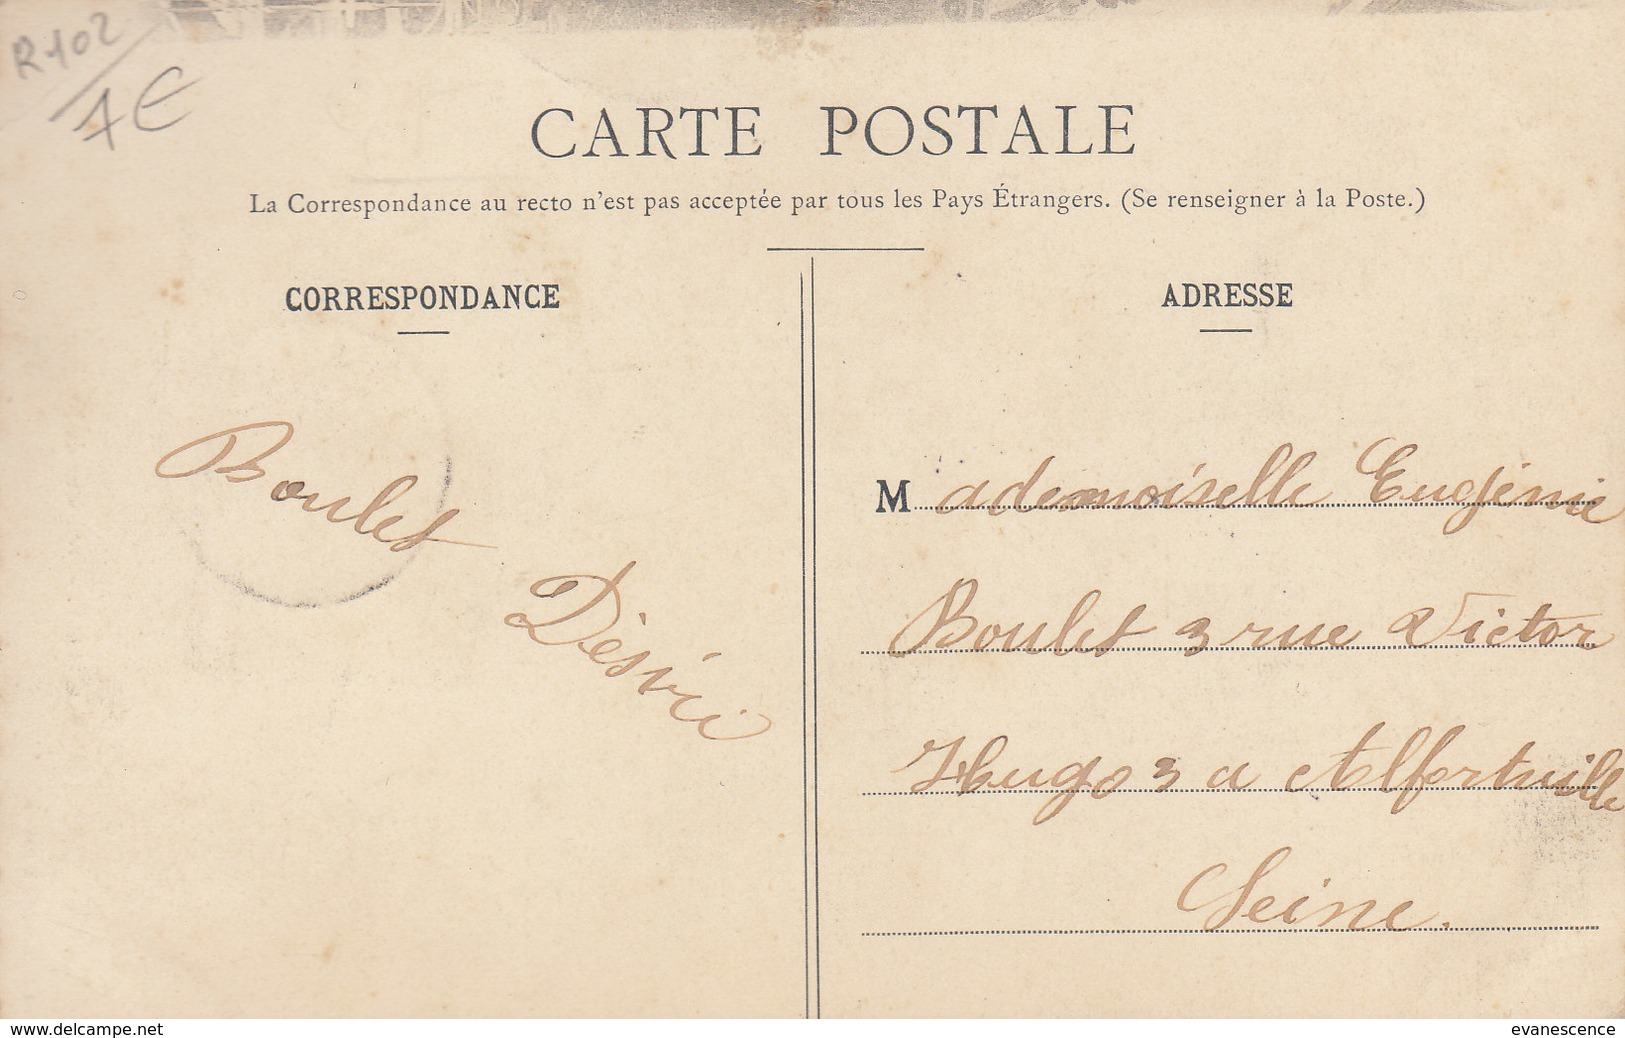 R102
7€
CARTE POSTALE
La Correspondance au recto n'est pas acceptée par tous les Pays Étrangers. (Se renseigner à la Poste.)
CORRESPONDANCE
Boulet
Désiré
ADRESSE
Mademoiselle Eugénie
Boulet 3 rue Victor
Hugo 3 a Alfortville
Seine.
www.delcampe.net
evanescence